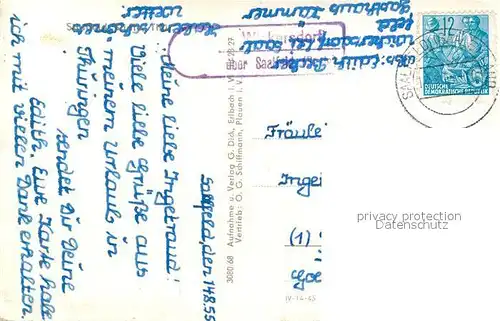 Saalfeld, den 14.8.55
Meine liebe Ingetraud!
Viele liebe Grüße aus
meinem Urlaub in
Thüringen
sendet Dir Deine
Edith. Eure Karte habe
ich mit vielen Dank erhalten.
Haben
Wetter.
Abs. Edith
Wickersdorf bei Saal
feld
Gasthaus
Wickersdorf
über Saalfeld
3080/68 Aufnahme u. Verlag G. Dick, Erlbach i. V.
Vertrieb: O. G. Schiffmann, Plauen i. V.
IV-14-45
12
DEUTSCHE
DEMOKRATISCHE REPUBLIK
SAALFELD
Fräulei
Ingei
(1)
privacy protection
Datenschutz